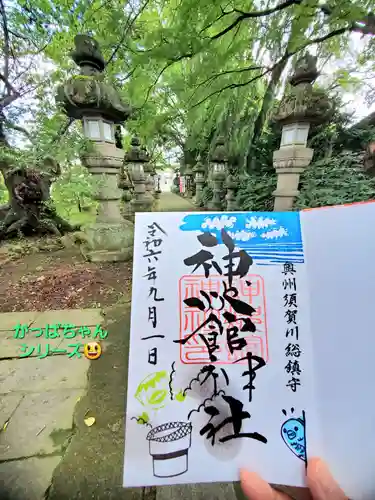 奥州須賀川総鎮守
神炊館神社
令和六年九月一日
がっぱちゃん
シリーズ😃